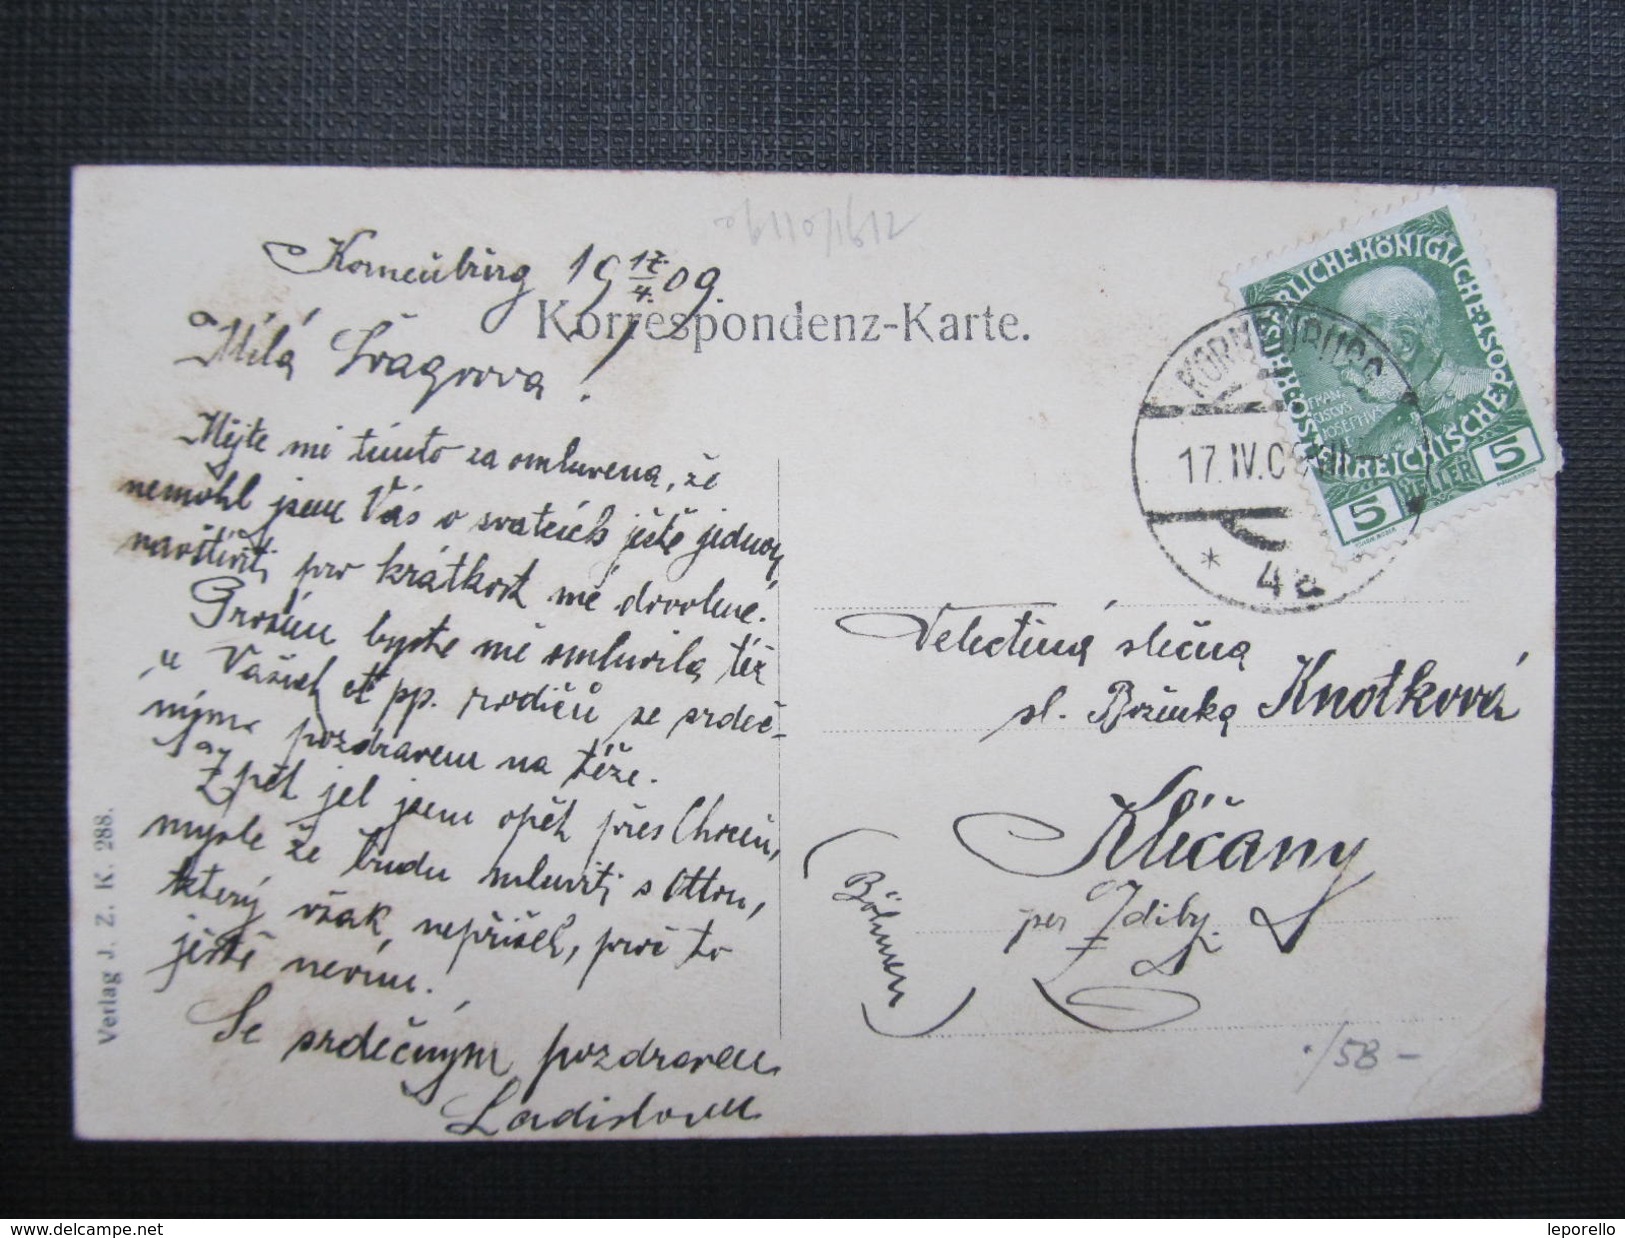 Korneuburg 19 17/4. 09.
Korrespondenz-Karte.
Milá Švagrova!
Mějte mi tímto za omluvena, že
nemohl jsem Vás o svatcích ještě jednou
navštíviti pro krátkost mé dovolené.
Prosím byste mě omluvila též
u Vašich ct pp. rodičů se srdeč-
ným pozdravem na též.
Zpět jel jsem opět přes
mysle že budu mluviti s Ottou,
který však nepřišel, proč to
ještě nevím.
Se srdečným pozdravem
Ladislav
Verlag J. Z. K. 288.
KORNEUBURG
17. IV. 09
* 4a
KAISERLICHE KÖNIGLICHE ÖSTERREICHISCHE POST
FRAN
CISCVS
IOSEPHVS
5 HELLER 5
Velectěná slečna
sl. Boženka Knotková
Klíčany
per Zdiby.
(Böhmen)
/58 -
delcampe.net
leporello